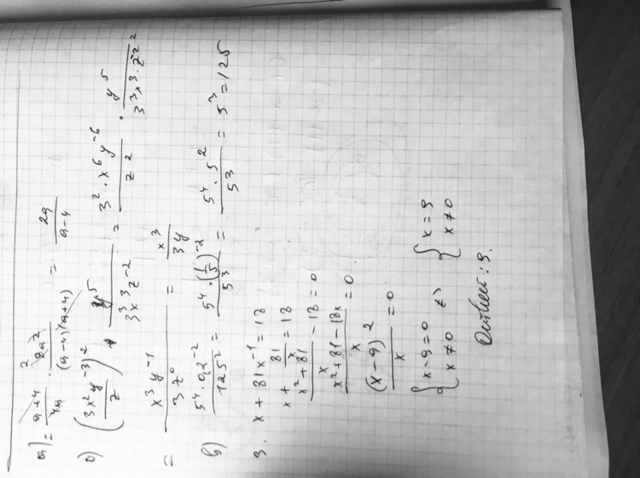 а) = (a+4)/(4a) · (8a²)/((a-4)(a+4)) = 2a/(a-4)
б) ((3x²y⁻³)/z)² · y⁵/(3³x³z⁻²) = (3² · x⁶y⁻⁶)/z² · y⁵/(3³x³ · z⁻²)
= (x³y⁻¹)/(3z⁰) = x³/(3y)
в) (5⁴·0,2⁻²)/125² = (5⁴·(1/5)⁻²)/5³ = (5⁴·5²)/5³ = 5³ = 125
3. x + 81x⁻¹ = 18
x + 81/x = 18
(x²+81)/x - 18 = 0
(x²+81-18x)/x = 0
(x-9)²/x = 0
{ x-9=0 ; x≠0 ⇔ { x=9 ; x≠0
Ответ: 9.